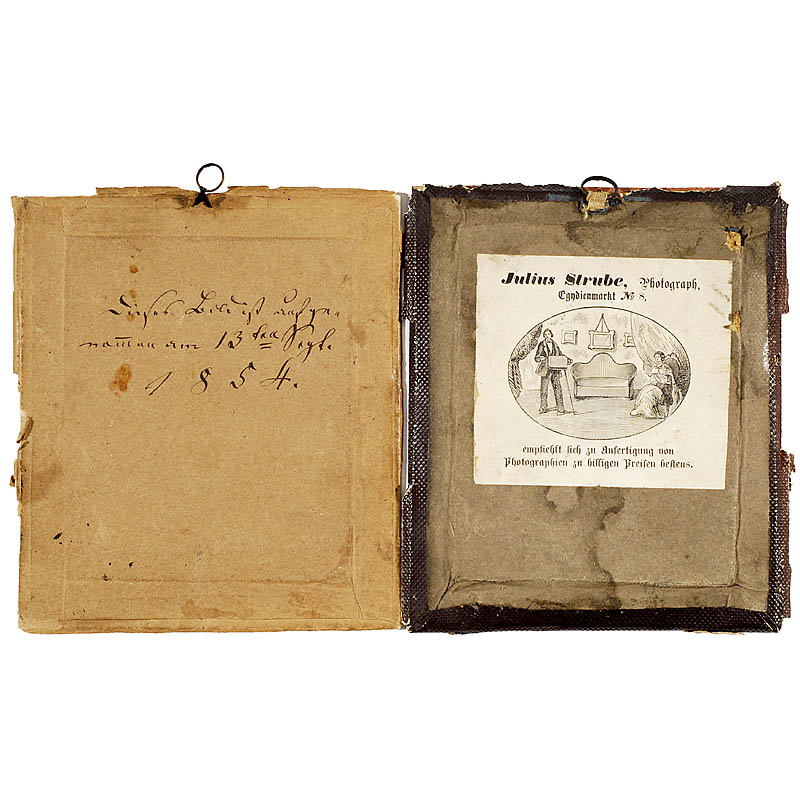 Dieses Bild ist aufge-
nom̄en am 13ten Sept.
1854.
Julius Strube, Photograph,
Egydienmarkt No 8,
empfiehlt sich zu Anfertigung von
Photographien zu billigen Preisen bestens.